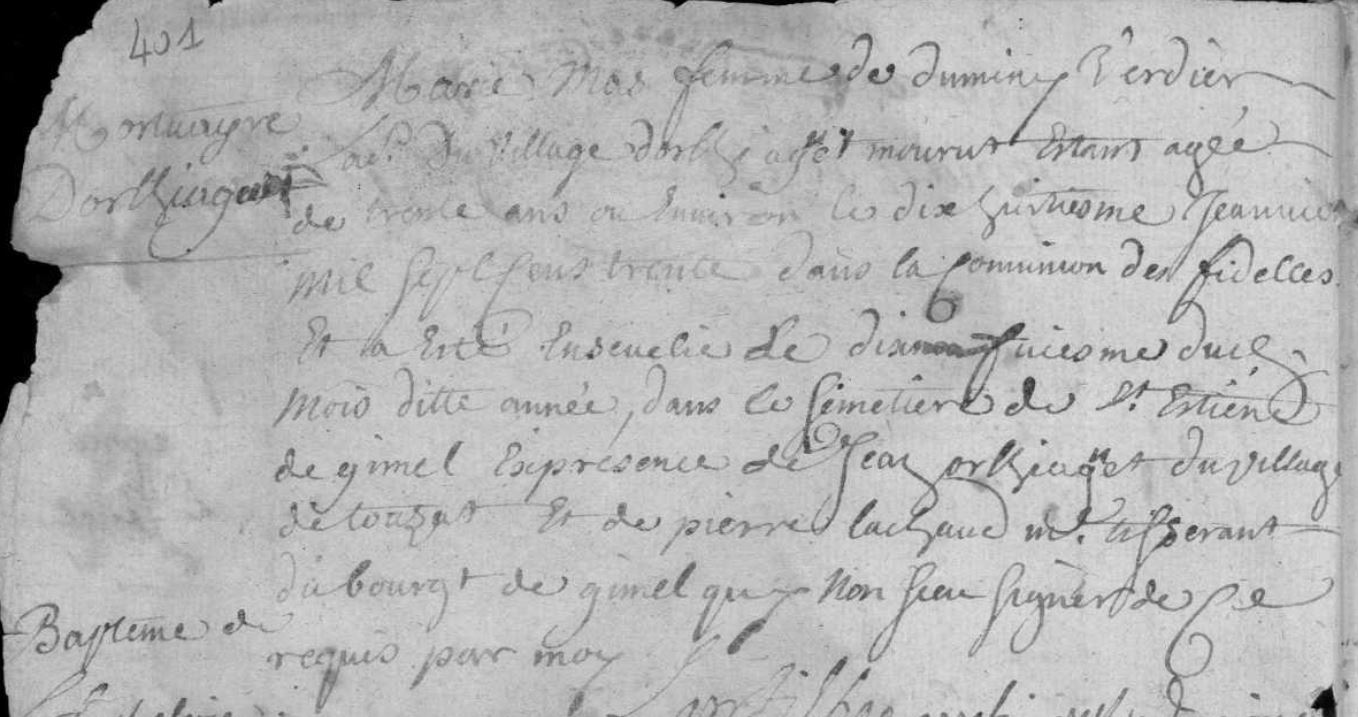 401
Mortuayre
Dorlhiaguet
Marie Mas femme de duminy Verdier
Lab.r du village dorlhiaguet mourut Estant agée
de trente ans ou Environ le dix huitiesme Jeanvier
mil sept sens trente dans la Comunion des fidelles
Et a Esté Ensevelie le dixneufviesme dud
mois ditte année, dans le semetiere de St. Estiéne
de gimel En presence de Jean orlhiaguet du village
de touzat Et de pierre lachaud m.e tisserant
du bourgt de gimel quy non sceu signer de Ce
requis par moy
Bapteme de